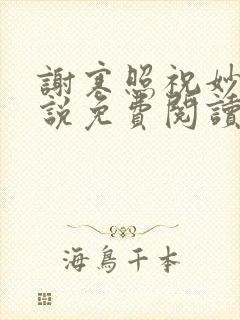 謝寒照祝妙
說免費閱讀
海鳥千本